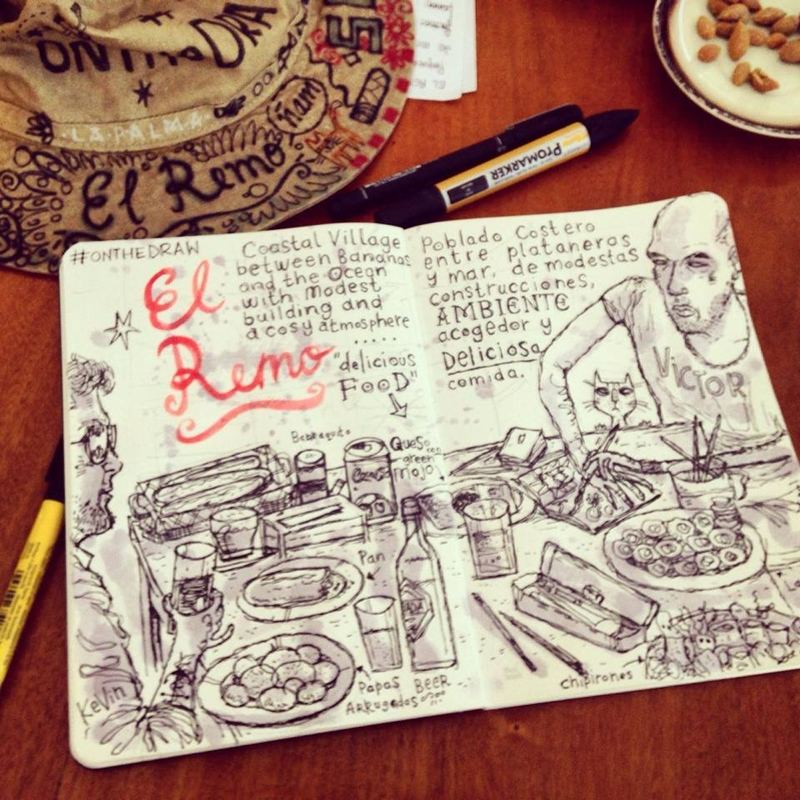 ON THE DRA
LA PALMA
El Remo
ÑAM
PROMARKER
#ONTHEDRAW
El
Remo
Coastal Village
between Bananas
and the Ocean
with Modest
building and
a cosy atmosphere
.....
"delicious
FOOD"
Poblado Costero
entre plataneros
y mar, de modestas
construcciones,
AMBIENTE
acogedor y
Deliciosa
comida.
VICTOR
Queso
con
green
mojo
Pan
Papas
Arrugadas
BEER
Chipirones
Kevin